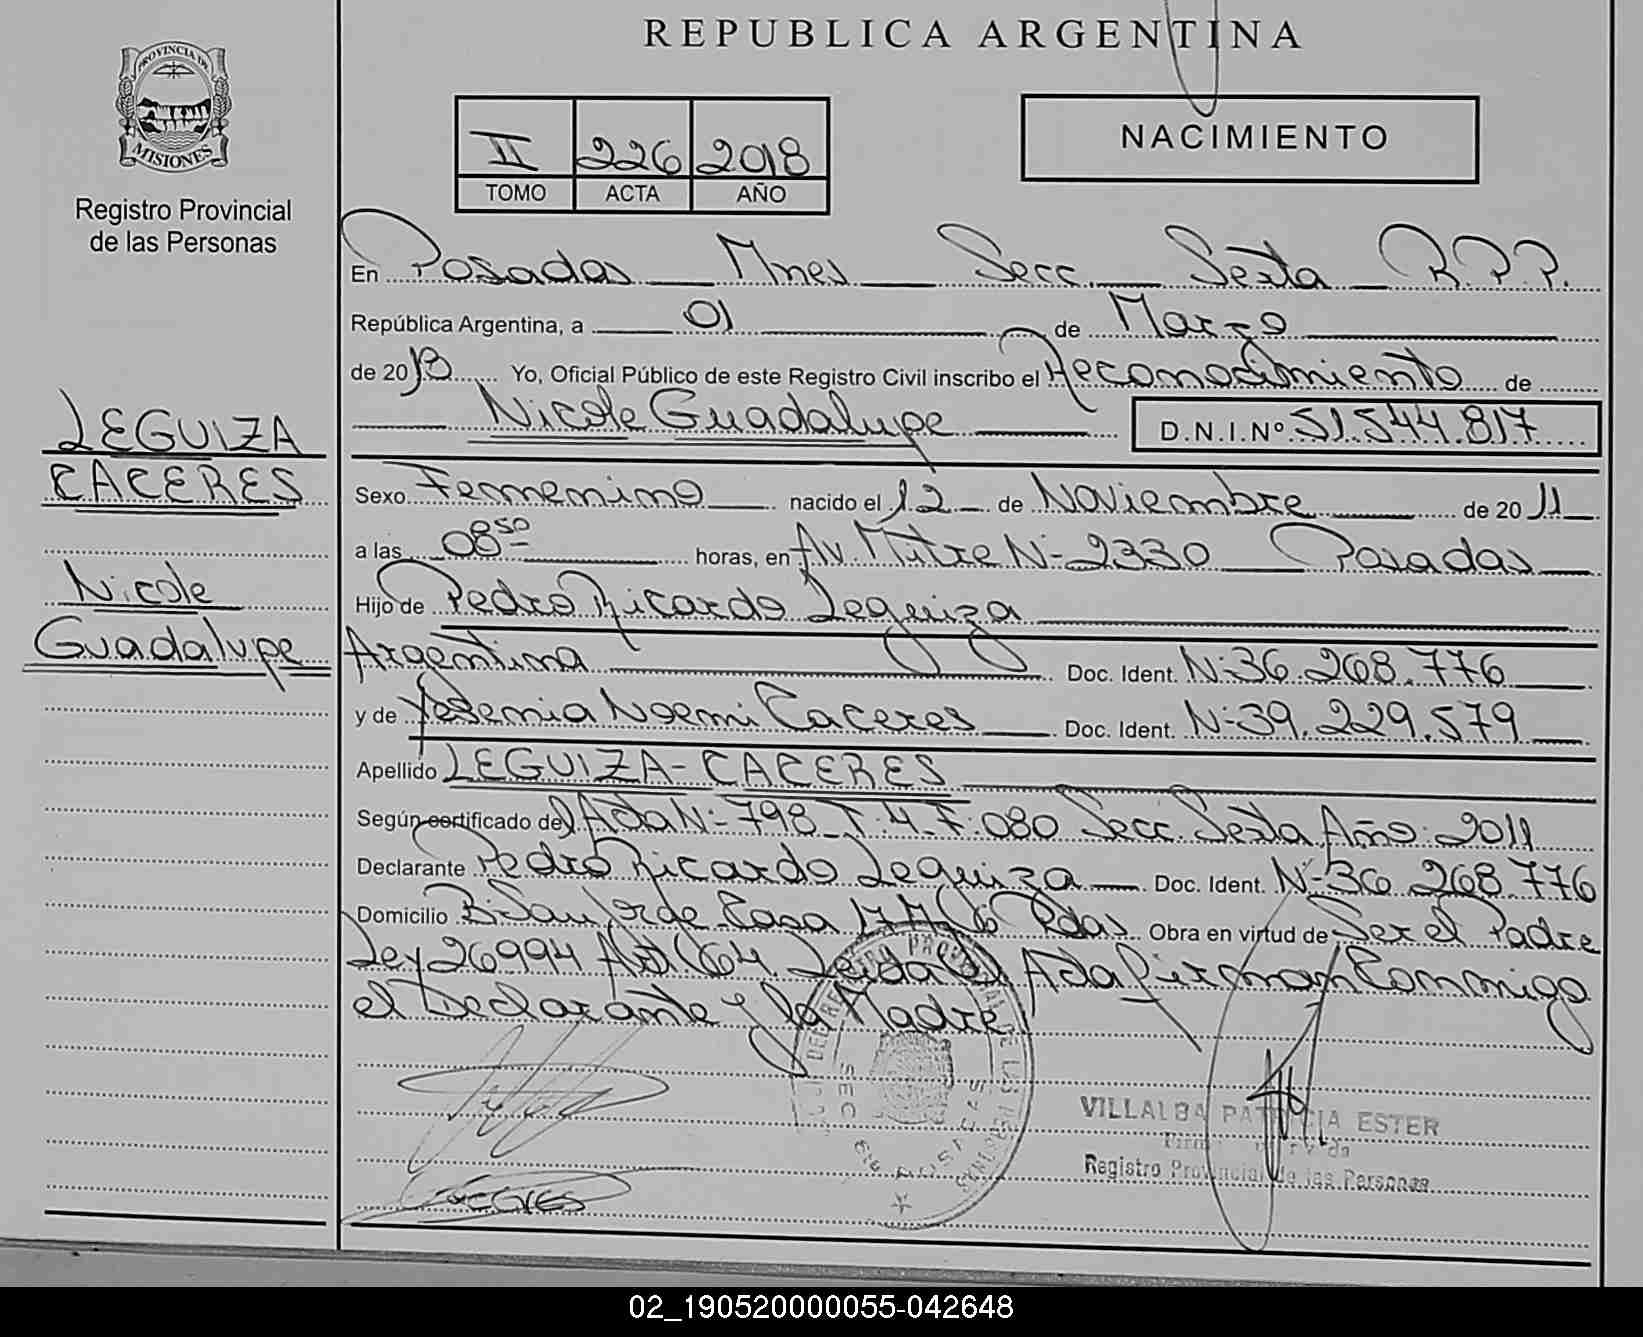 REPUBLICA ARGENTINA
PROVINCIA DE
MISIONES
Registro Provincial
de las Personas
II 226 2018
TOMO ACTA AÑO
NACIMIENTO
En Posadas Mnes Secc. Sexta R.P.P.
República Argentina, a 01 de Marzo
de 2018 Yo, Oficial Público de este Registro Civil inscribo el Reconocimiento de
Nicole Guadalupe D.N.I.Nº 51.544.817
LEGUIZA
CACERES
Nicole
Guadalupe
Sexo Femenino nacido el 12 de Noviembre de 2011
a las 08 50 horas, en Av. Mitre Nº 2330 Posadas
Hijo de Pedro Ricardo Leguiza
Argentina Doc. Ident. Nº 36.268.776
y de Yesemia Noemi Caceres Doc. Ident. Nº 39.229.579
Apellido LEGUIZA-CACERES
Según certificado del Acta Nº 798 T.4 F.080 Secc. Sexta Año: 2011
Declarante Pedro Ricardo Leguiza Doc. Ident. Nº 36.268.776
Domicilio Bº San Jorge Casa 17 Pdas Obra en virtud de Ser el Padre
Ley 26994 Art 664. Leida el Acta Firman Conmigo
el Declarante y la Madre
SECC 6ta POSADAS
Caceres
VILLALBA PATRICIA ESTER
Registro Provincial de las Personas
02_190520000055-042648